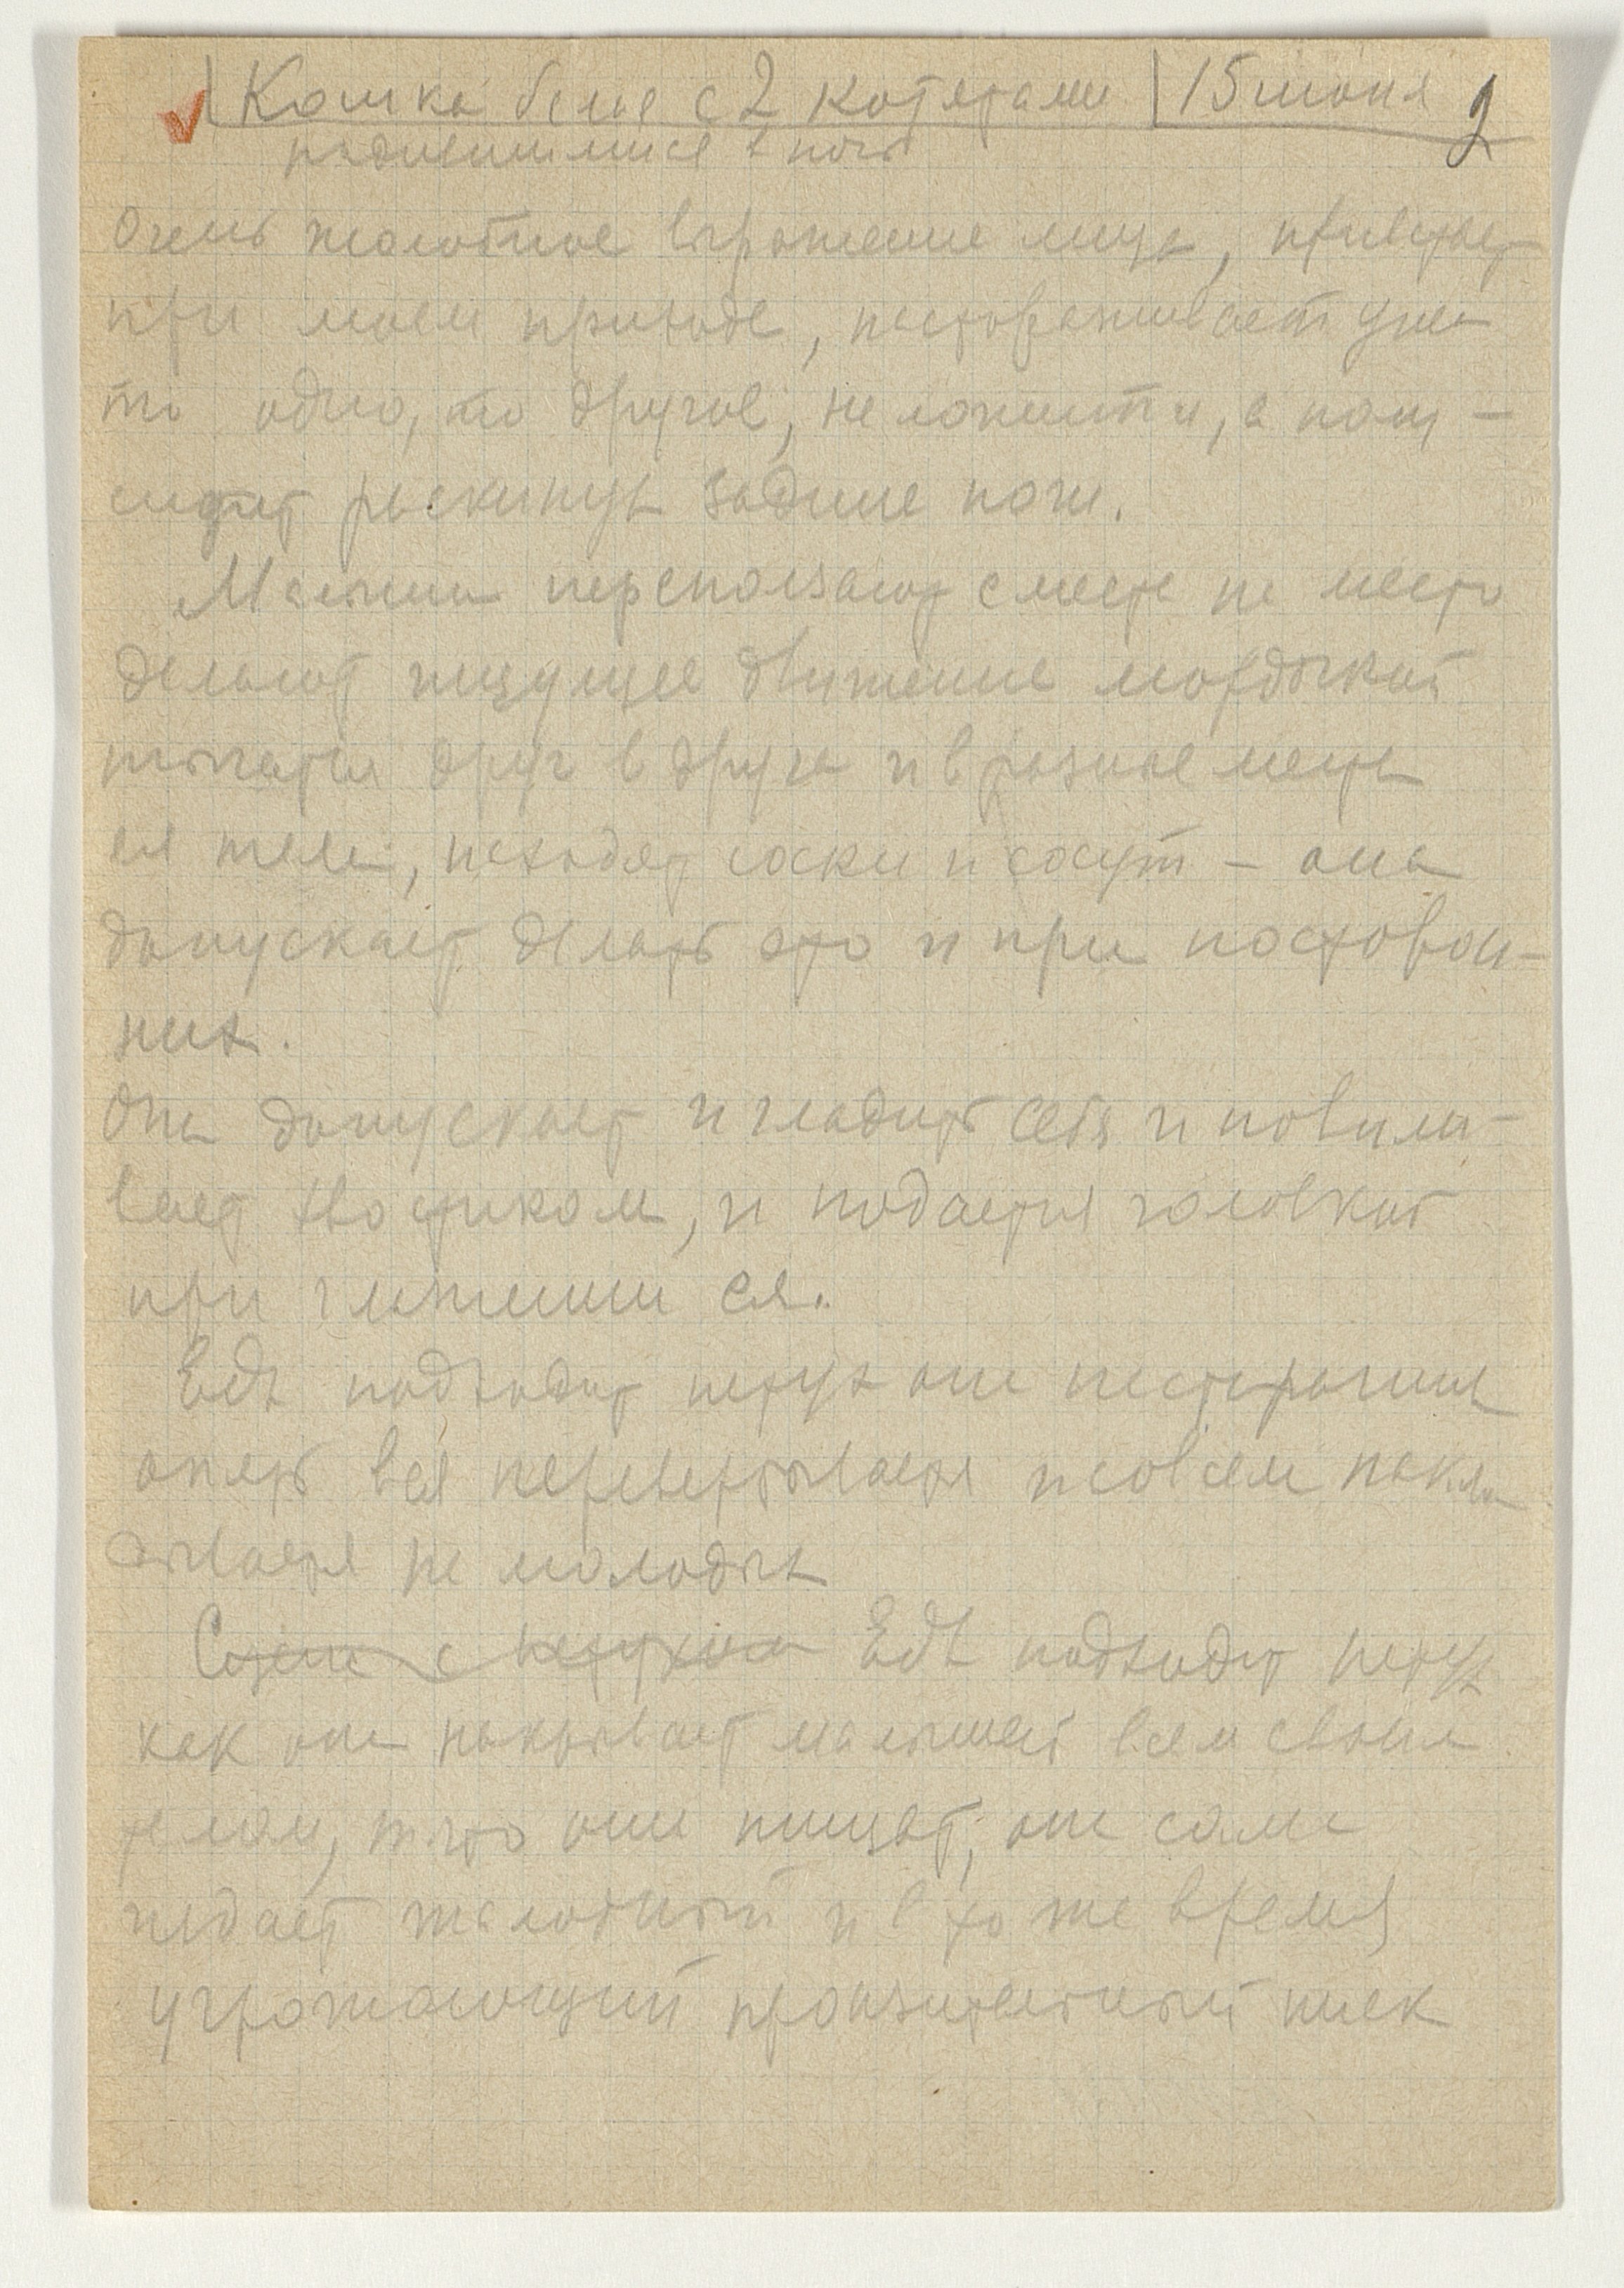 Кошка белая с 2 котятами 15 июня 2
родившимися в ночь
Очень жалобное выражение лица, привстает
при моем приходе, настораживает уши
то одно, то другое, не ложится, а полу-
сидит раскинув задние ноги.
Малыши переползают с места на место
делают ищущее движение мордочкой
тычатся друг в друга и в разные места
ея тела, находят соски и сосут - она
допускает делать это и при посторон-
них.
Она допускает и гладить себя и повили-
вает хвостиком, и подается головкой
при глажении ея.
Едва подходит петух она насторожив
опять вся перевертывается и совсем накла
дывается на молодых
Сцена с петухом Едва подходит петух
как она накрывает малышей всем своим
телом, т.что они пищат, она сама
издает жалобный и в то же время
угрожающий пронзительный писк